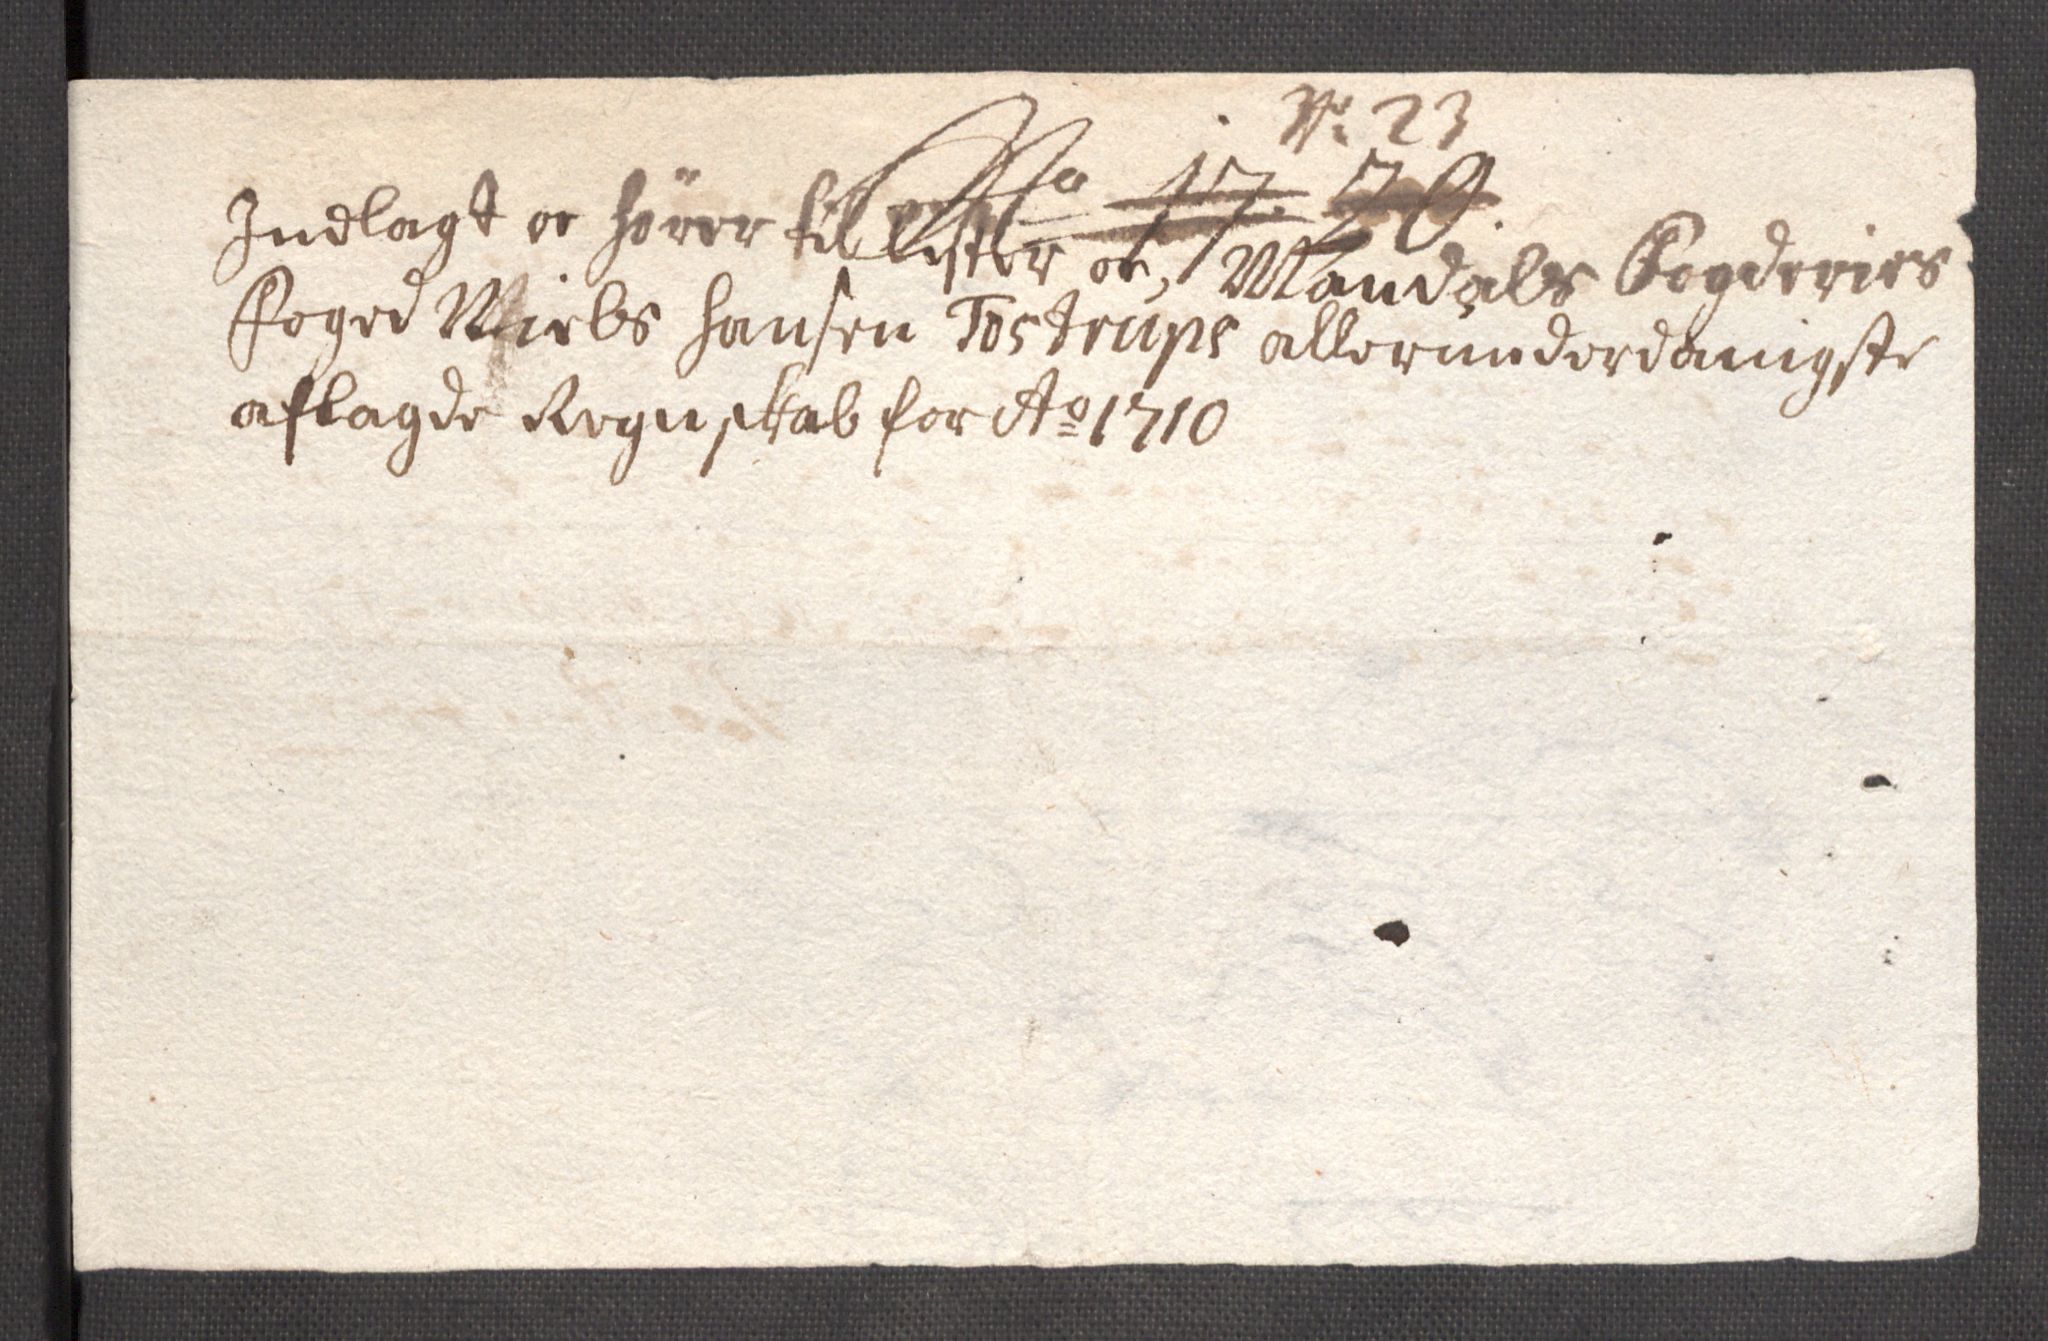 No. 23
No 17. 70.
Indlagt oc hörer til Lister oc Mandals Fogderies
Foged Nields Hansen Tostrups allerunderdanigste
aflagde Regnskab for Ao 1710